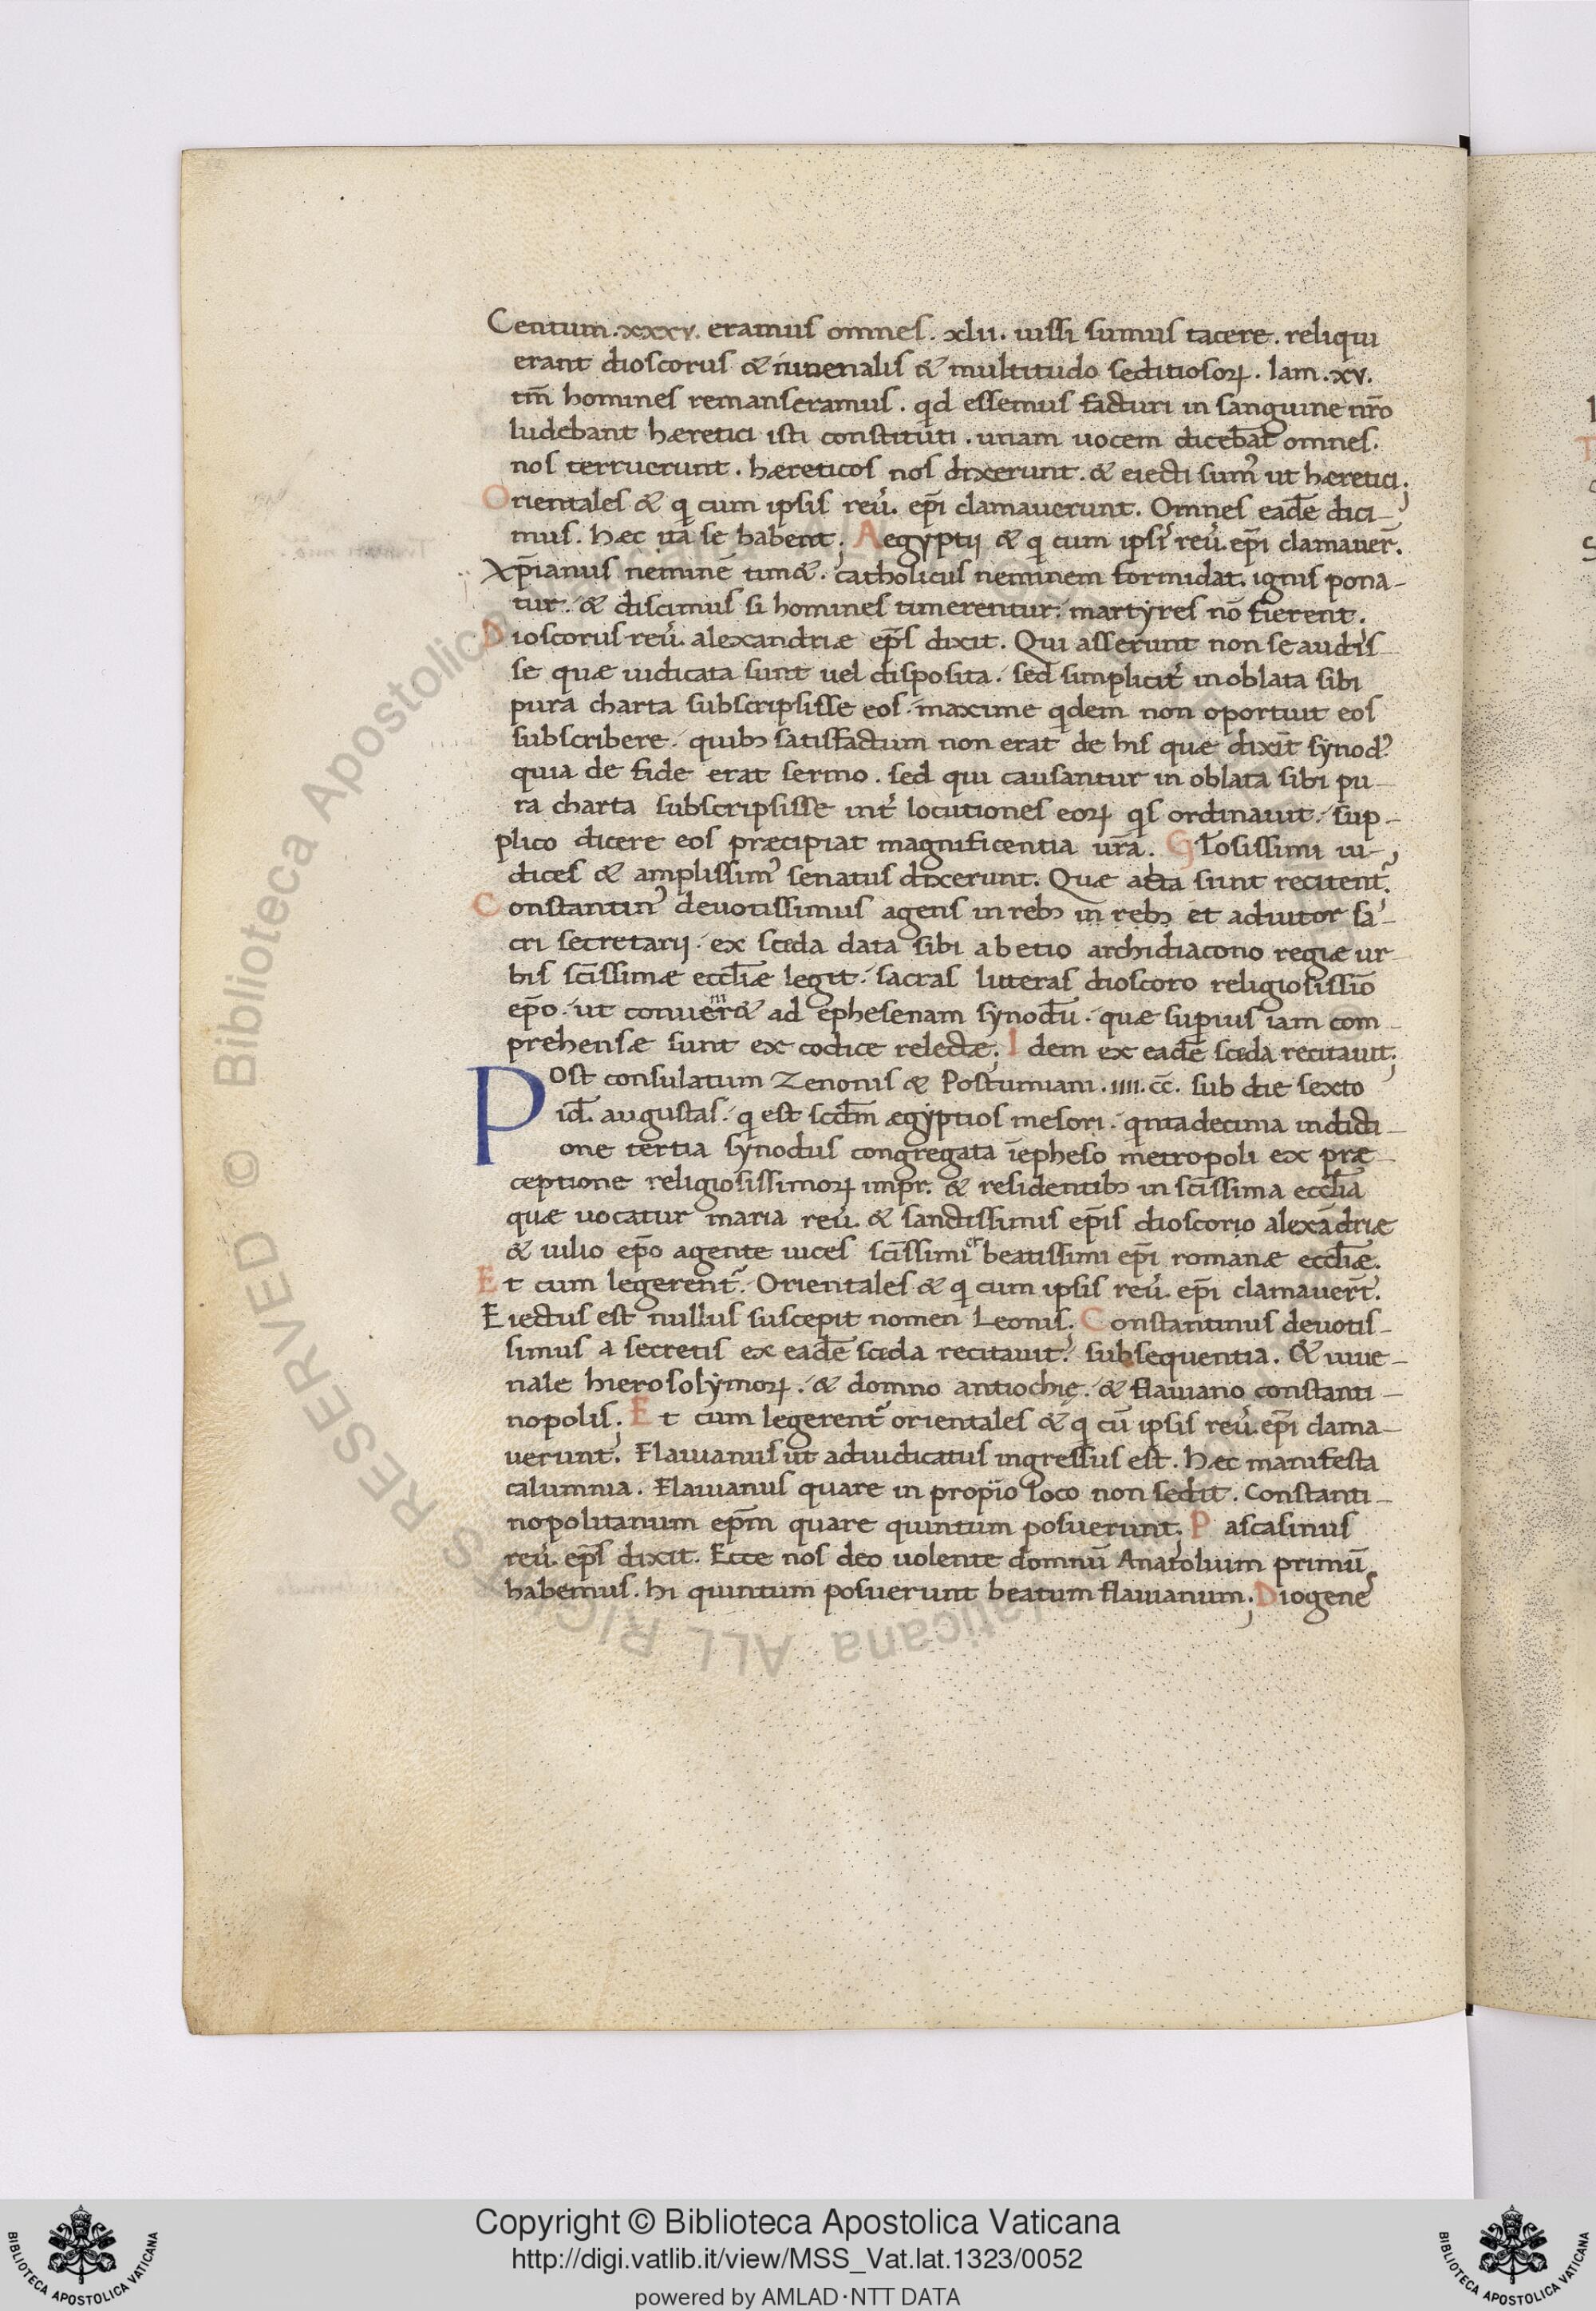 Centum .xxxv. eramus omnes . xlii . iussi sumus tacere . reliqui
erant dioscorus & iuuenalis & multitudo seditiosoꝝ . Iam .xv.
tm̄ homines remanseramus . qd essemus facturi in sanguine nr̄o
ludebant hæretici isti constituti . unam uocem diceba͞t omnes .
nos terruerunt . hæreticos nos dixerunt . & eiecti sum᾽ ut hæretici;
Orientales & q cum ipsis reu᾽. ep̄i clamauerunt. Omnes eadē dici-
mus . hæc ita se habent; Aegyptij & q cum ipsi᾽ reu᾽. ep̄i clamauer̄.
Xp̄ianus neminē tim&. catholicus neminem formidat. ignis pona-
tur . & discimus si homines timerentur . martyres nō fierent.
Dioscorus reu᾽. alexandriæ ep̄s dixit. Qui asserunt non se audis-
se quæ iudicata sunt uel disposita . sed simplicit᾽ in oblata sibi
pura charta subscripsisse eos . maxime qdem non oportuit eos
subscribere . quibꝫ satisfactum non erat de his que dixit synod᾽
quia de fide erat sermo . sed qui causantur in oblata sibi pu-
ra charta subscripsisse int᾽ locutiones eoꝝ qs ordinauit . sup-
plico dicere eos præcipiat magnificentia ur̄a. Gl̄osissimi iu-
dices & amplissim᾽ senatus dixerunt. Quæ acta sunt recitent᾽;
Constantin᾽ deuotissimus agens in rebꝫ in rebꝫ et adiutor sa-
cri secretarij . ex sceda data sibi ab etio archidiacono regiæ ur-
bis sc̄issimæ eccl̄iæ legit . sacras litteras dioscoro religiosissīo
ep̄o . ut conueⁿir& ad ephesenam synodū . quæ superius iam com-
prehensæ sunt ex codice relectæ; Idem ex eadē sceda recitauit;
Post consulatum Zenonis & Postumiani .iiii. c̄c̄. sub die sexto
id̄. augustas . q est scd̄m ægyptios mesori . qntadecima indicti-
one tertia synodus congregata īepheso metropoli ex præ-
ceptione religiosissimoꝝ impr. & residentibꝫ in sc̄issima eccl̄ia
quæ uocatur maria reu᾽. & sanctissimis ep̄is dioscorio alexādriæ
& iulio ep̄o agente uices sc̄issimi et beatissimi ep̄i romanæ eccl̄iæ.
Et cum legerent᾽. Orientales & q cum ipsis reu᾽. ep̄i clamauer̄t᾽.
Eiectus est nullus suscepit nomen Leonis; Constantinus deuotis-
simus a secretis ex eadē sceda recitauit᾽. subsequentia. & iuue-
nale hierosolymoꝝ . & domno antiochię . & flauiano constanti-
nopolis; Et cum legerent᾽ orientales & q cū ipsis reu᾽. ep̄i clama-
uerunt. Flauianus ut adiudicatus ingressus est . hæc manifesta
calumnia . Flauianus quare in propio loco non sedit . Constanti-
nopolitanum ep̄m quare quintum posuerunt; Pascasinus
reu᾽. ep̄s dixit. Ecce nos deo uolente domnū Anatolium primū
habemus . hi quintum posuerunt beatum flauianum; Diogenes
Copyright © Biblioteca Apostolica Vaticana
http://digi.vatlib.it/view/MSS_Vat.lat.1323/0052
powered by AMLAD·NTT DATA